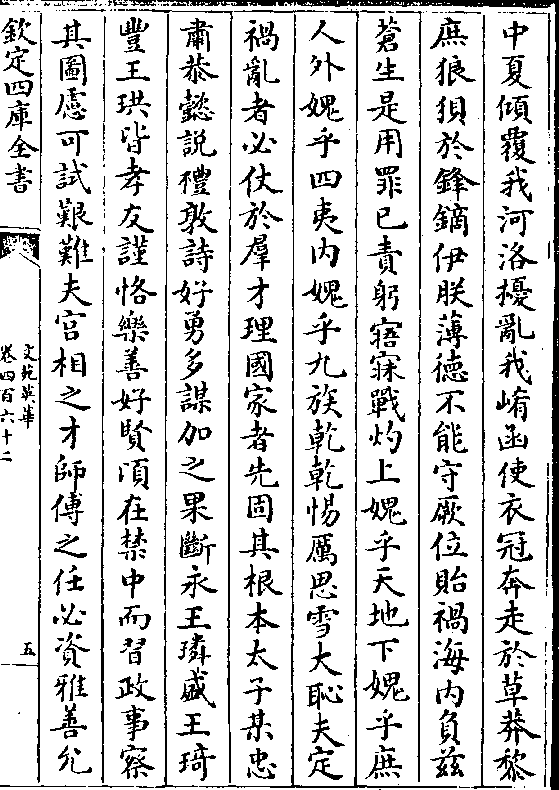 中夏傾覆我河洛擾亂我崤函使衣冠奔走於草莽黎
庶狼狽於鋒鏑伊朕薄德不能守厥位貽禍海内負兹
蒼生是用罪已責躬寤寐戰灼上媿乎天地下媿乎庶
人外媿乎四夷内媿乎九族乾乾惕厲思雪大恥夫定
禍亂者必仗於羣才理國家者先固其根本太子某忠
肅恭懿説禮敦詩好勇多謀加之果斷永王璘盛王琦
豐王珙皆孝友謹恪樂善好賢頃在禁中而習政事察
其圖慮可試艱難夫宫相之才師傅之任必資雅善允
欽定四庫全書
文苑英華
卷四百六十二
五